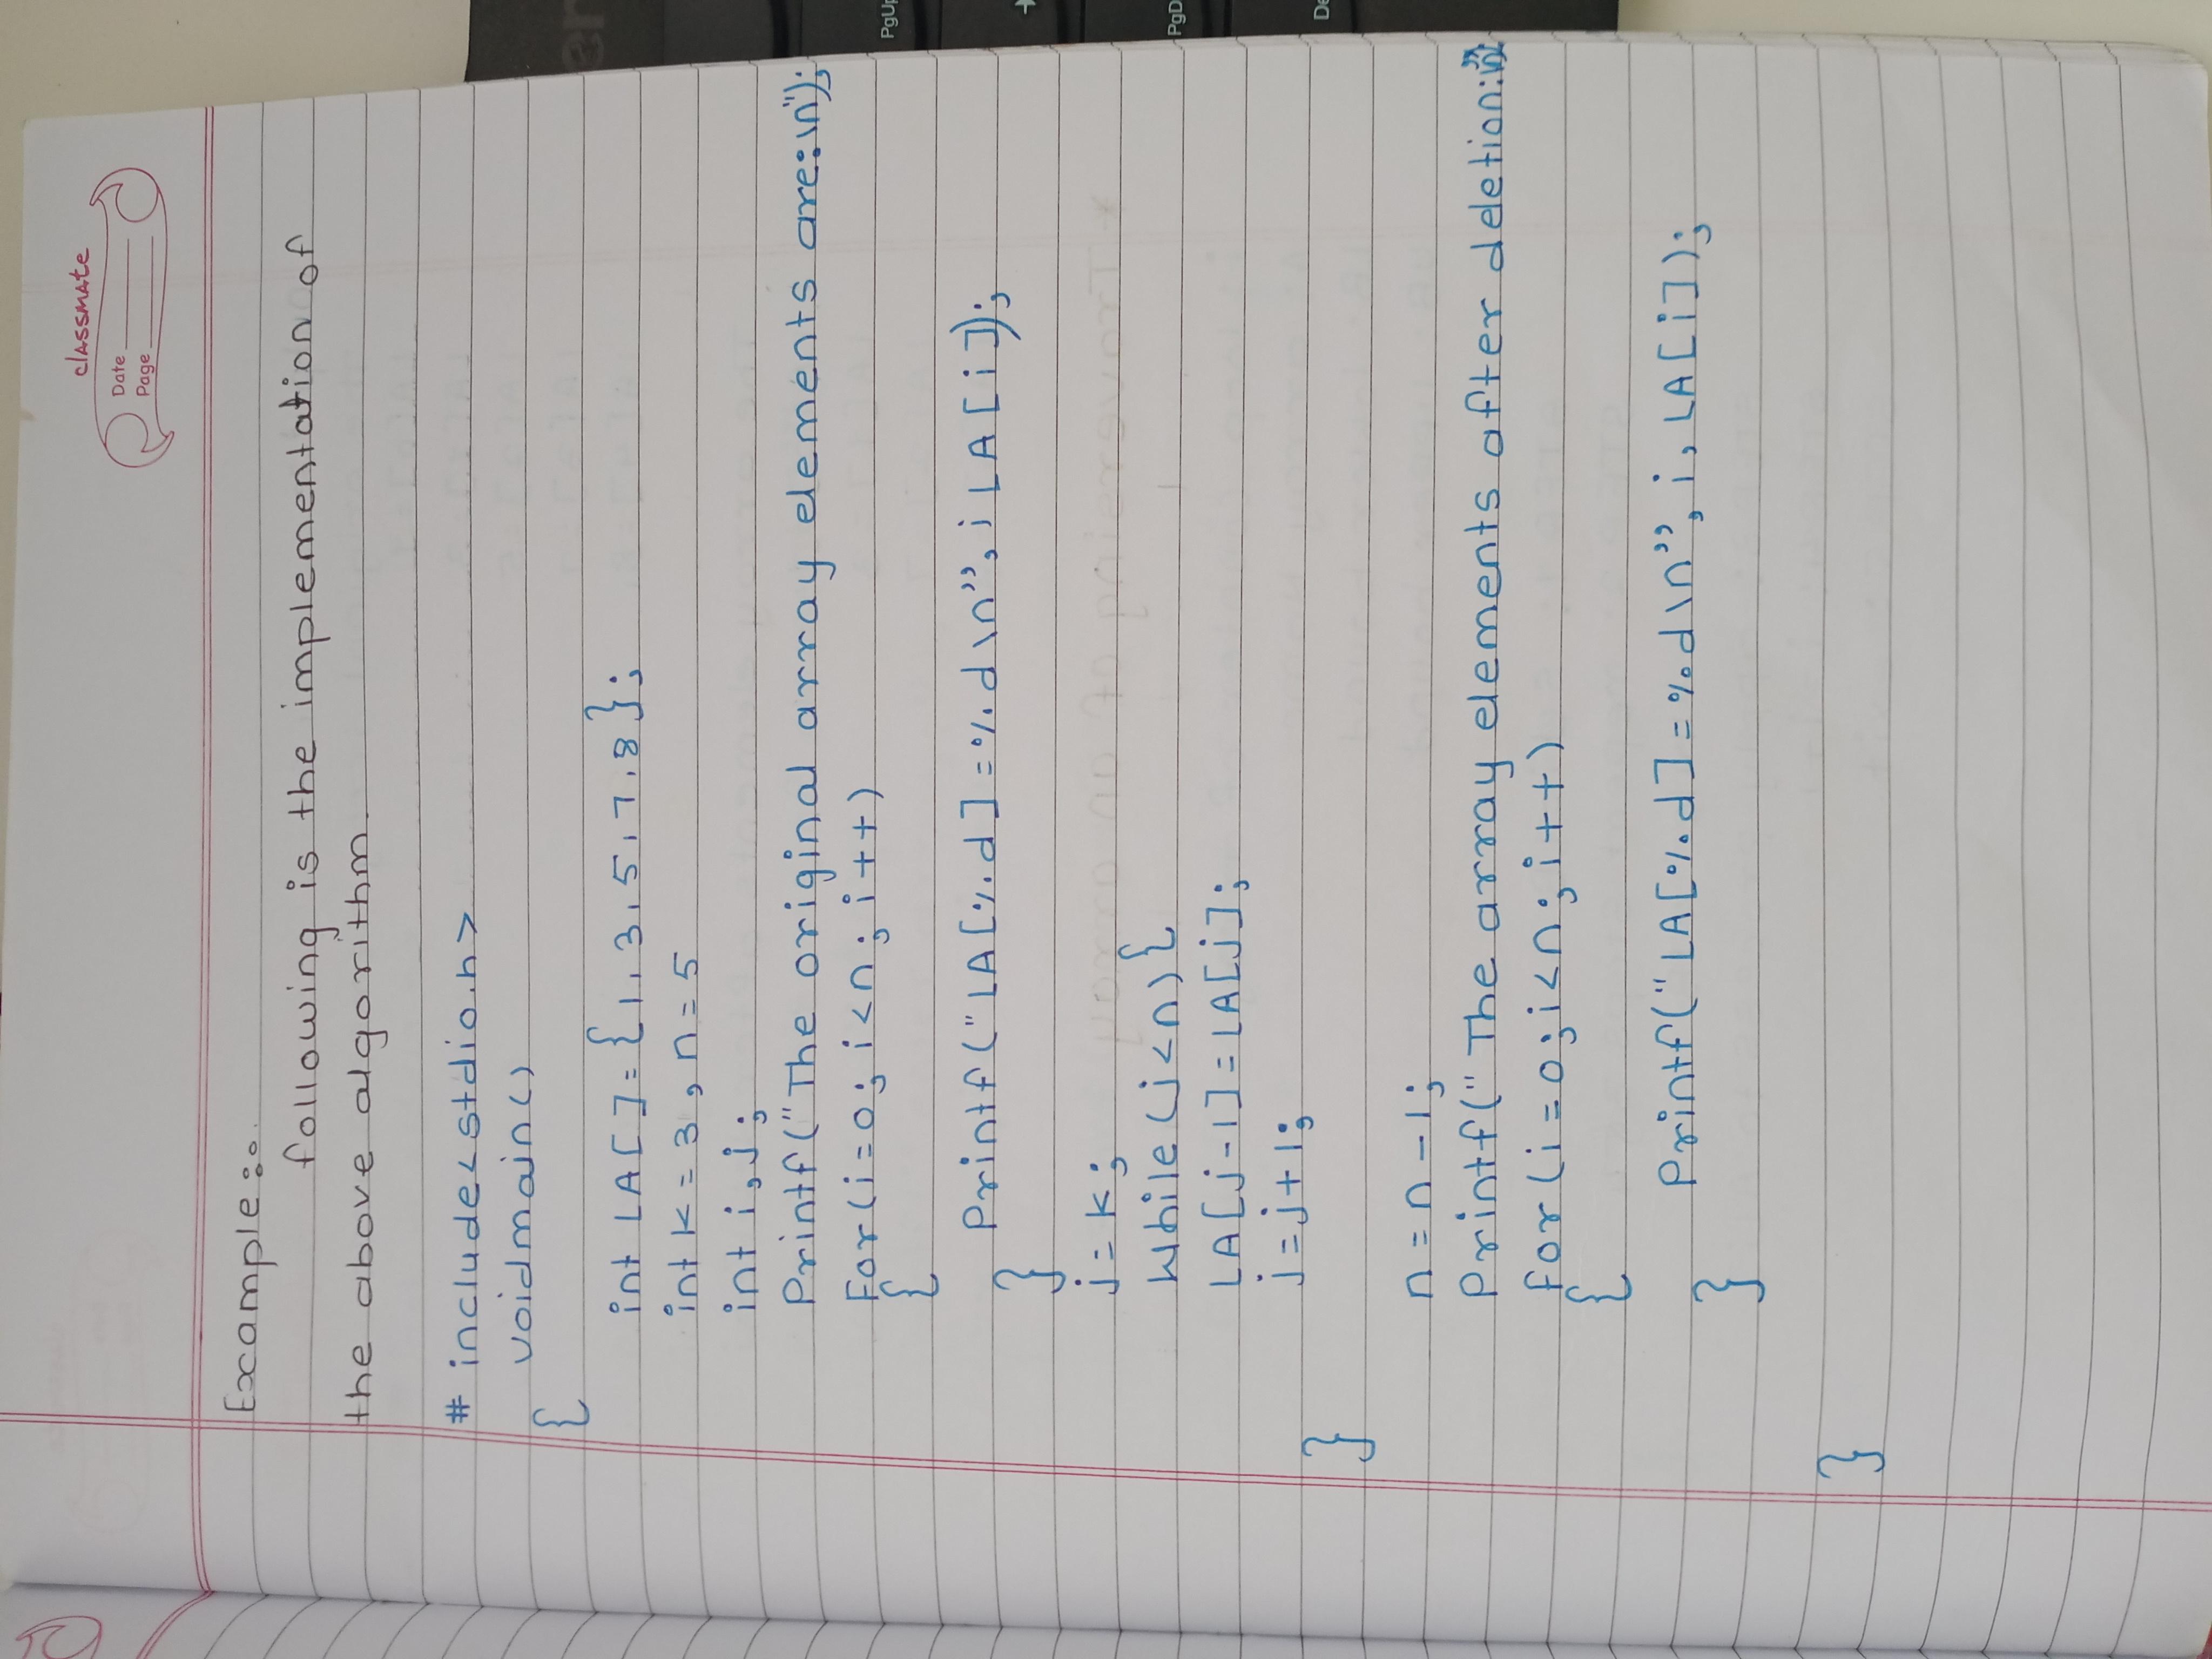 classmate
Date
Page
Example:
following is the implementation of
the above algorithm.
# include<stdio.h>
voidmain()
{
int LA[]={1,3,5,7,8};
int k=3,n=5
int i,j;
Printf("The original array elements are:\n");
For(i=0;i<n;i++)
{
Printf("LA[%d]=%d\n",i LA[i]);
}
j=k;
While(j<n){
LA[j-1]=LA[j];
j=j+1;
}
n=n-1;
Printf("The array elements after deletion:
for(i=0;i<n;i++)
{
Printf("LA[%d]=%d\n",i,LA[i]);
}
}
PgUp
PgD
De